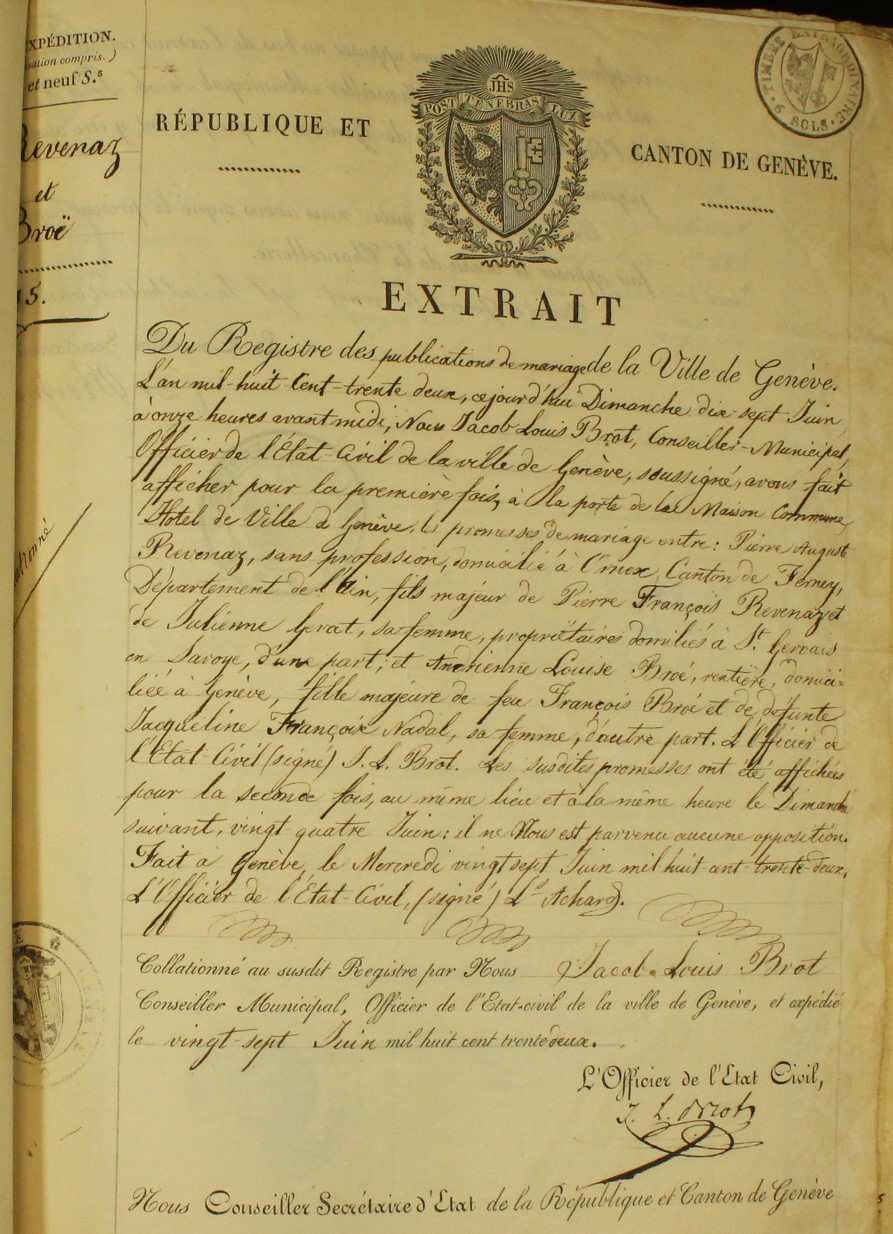 XPÉDITION.
sation compris.)
et neuf S.s
Revenaz
et
Broë
5.
JHS
POST TENEBRAS LUX
TIMBRE EXTRAORDINAIRE
9 SOLS.
RÉPUBLIQUE ET
CANTON DE GENÈVE.
EXTRAIT
Du Registre des publications de mariage de la Ville de Genève.
L'an mil-huit Cent-trente deux, cejourd'hui Dimanche dix sept Juin
à onze heures avant midi, Nous Jacob Louis Brot, Conseiller-Municipal,
Officier de l'État-Civil de la ville de Genève, soussigné, avons fait
afficher pour la première fois, à la porte de la Maison Commune,
Hotel de Ville d Genève, les promesses de mariage entre: Pierre August
Revenaz, sans profession, domicilié à Ornex, Canton de Ferney,
Département de l'Ain, fils majeur de Pierre François Revenaz et
de Julienne Grat, sa femme, propriétaires domiliés à St Gervais
en Savoye, d'une part; et Andrienne Louise Broé, rentière, domici-
liéé à Genève, fille majeure de feu François Broé et de défunte
Jacqueline Françoise Nadal, sa femme, d'autre part. L'Officier de
l'Etat-Civil (signé) J. L. Brot. Les susdites promesses ont été affichées
pour la seconde fois, au même lieu et à la même heure le Dimanche
suivant, vingt quatre Juin: il ne Nous est parvenu aucune opposition.
Fait a Genève, le Mercredi vingt sept Juin mil huit cent trente-deux,
L'Officier de l'État-Civil, (signé) Ls Achard.
Collationné au susdit Registre par Nous Jacob-Louis Brot
Conseiller Municipal, Officier de l'Etat-civil de la ville de Genève, et expédié
le vingt-sept Juin mil huit cent trente deux.
L'Officier de l'Etat Civil,
J. L. Brot
Nous Conseiller Secrétaire d'Etat de la République et Canton de Genève